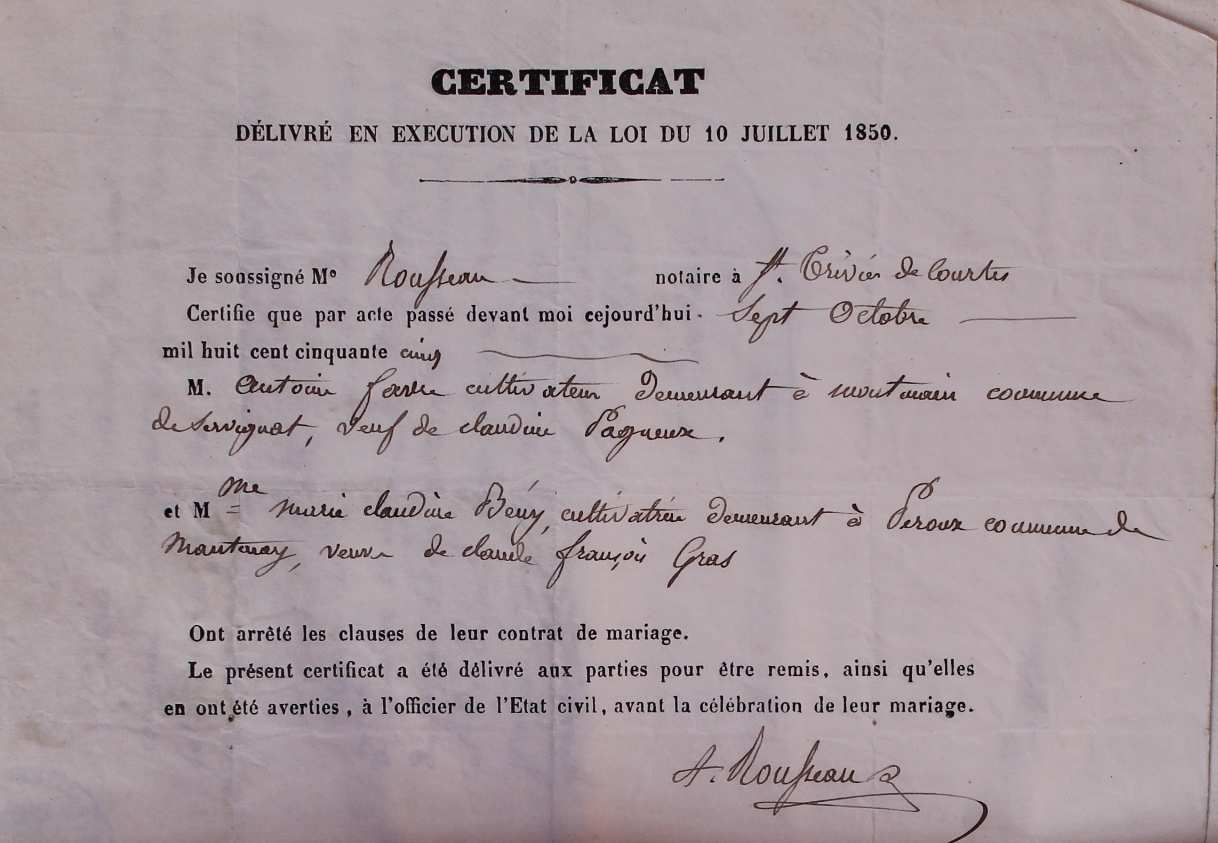 CERTIFICAT
DÉLIVRÉ EN EXECUTION DE LA LOI DU 10 JUILLET 1850.
Je soussigné Me Rousseau notaire à St. Trivier de Courtes
Certifie que par acte passé devant moi cejourd'hui Sept Octobre
mil huit cent cinquante cinq
M. Antoine favre cultivateur Demeurant à montmain commune
de Servignat, veuf de claudine Pagneux.
et M me marie claudine Béry, cultivatrice demeurant à Peroux commune de
Mantenay, veuve de claude françois Gras
Ont arrêté les clauses de leur contrat de mariage.
Le présent certificat a été délivré aux parties pour être remis, ainsi qu'elles
en ont été averties, à l'officier de l'Etat civil, avant la célébration de leur mariage.
A. Rousseau